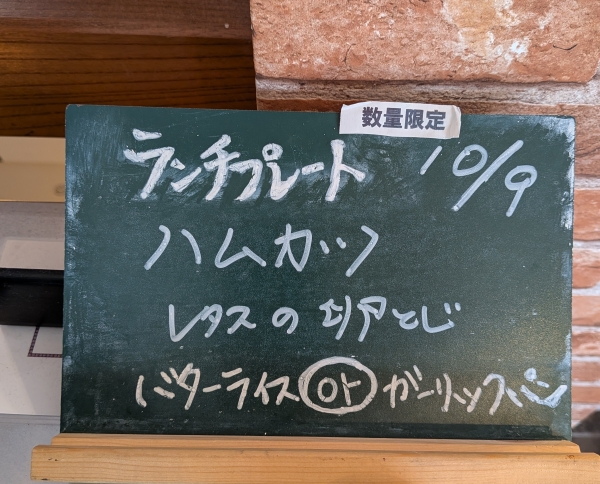 数量限定
ランチプレート 10/9
ハムカツ
レタスの卵とじ
バターライス or ガーリックパン